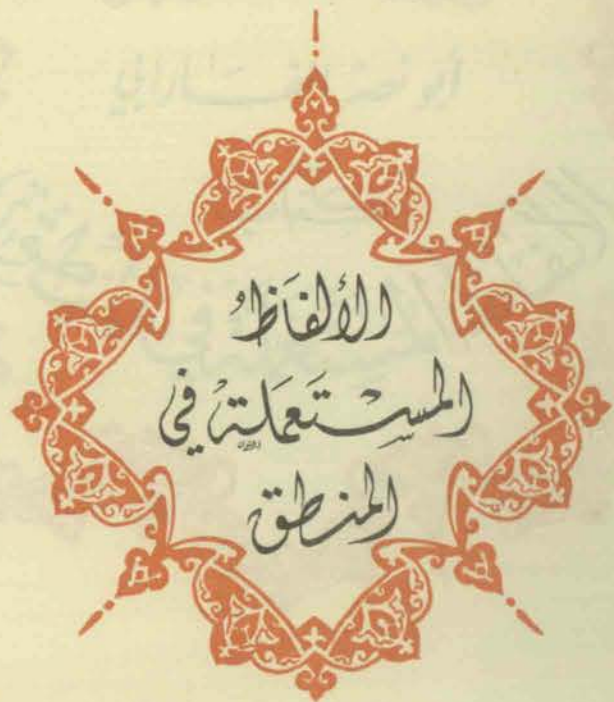 الألفَاظُ
المسِتَعمَلة في
المنطق